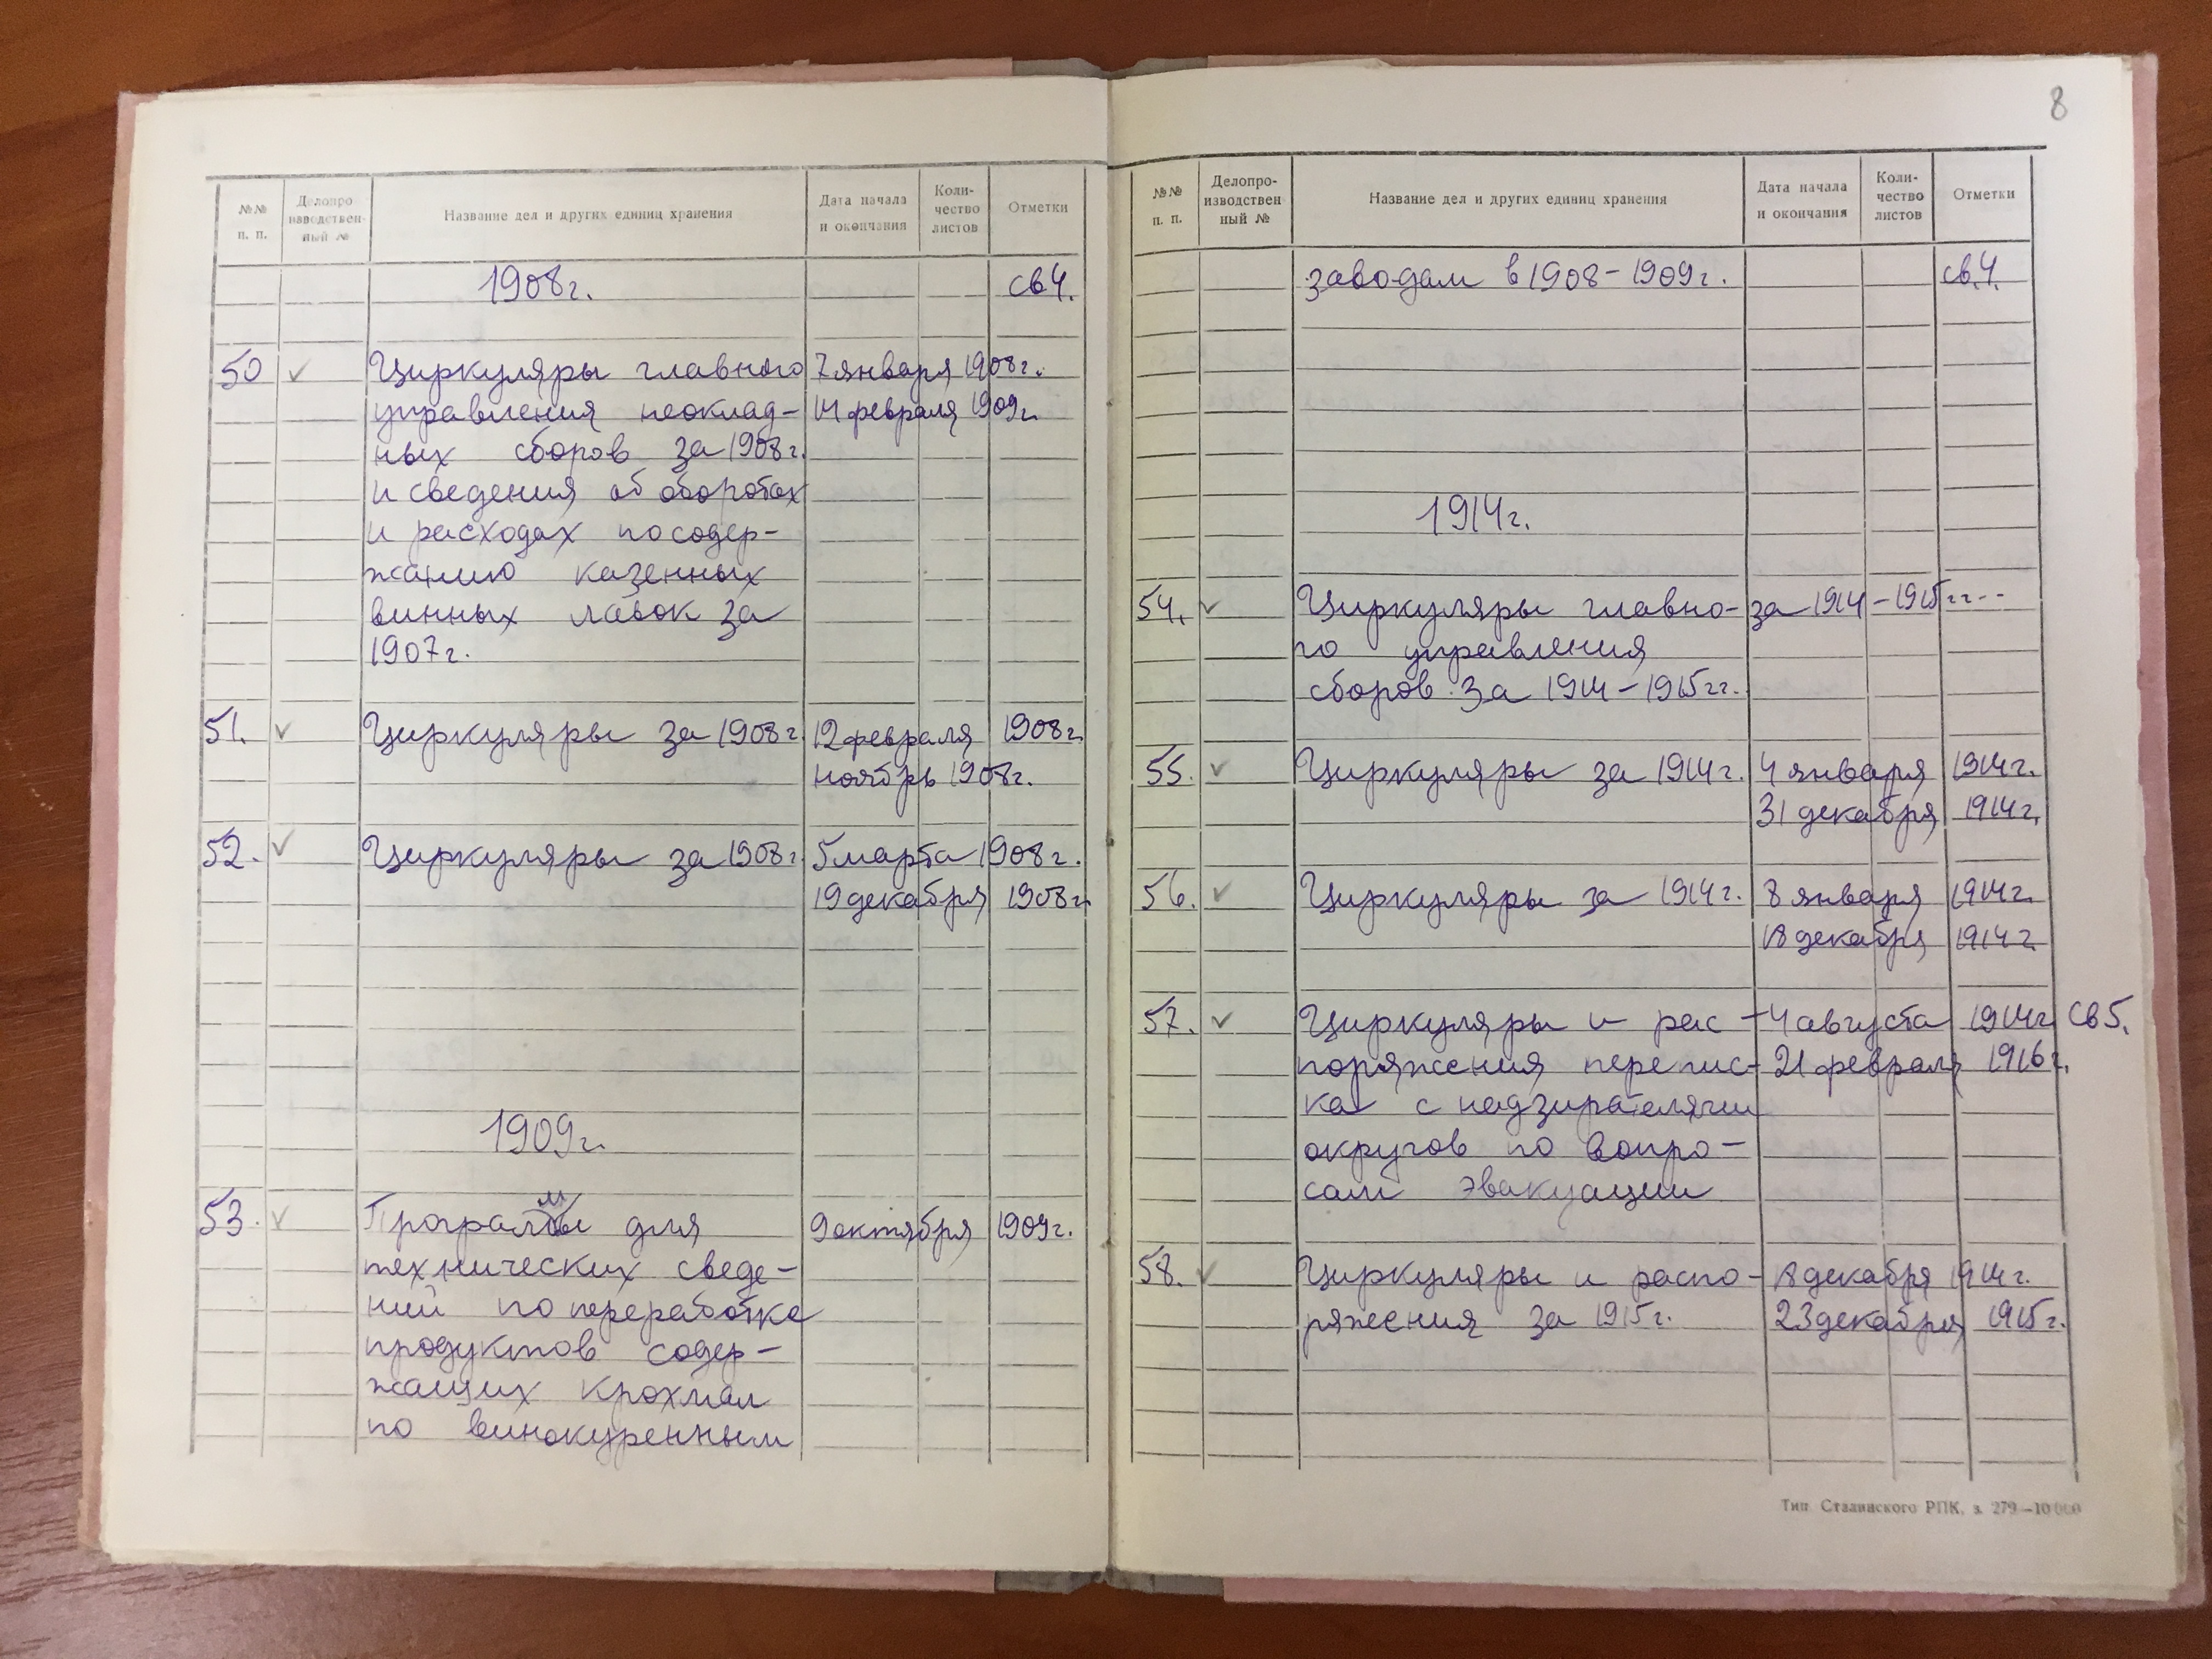 №№ п. п.
Делопро
изводствен-
ный №
Название дел и других единиц хранения
Дата начала
и окончания
Коли-
чество
листов
Отметки
1908г.
св4.
50 ✓ Циркуляры главного 7 января 1908г.
управления неоклад- 14 февраля 1909г.
ных сборов за 1908г.
и сведения об оборотах
и расходах по содер-
жанию казенных
винных лавок за
1907г.
51. ✓ Циркуляры за 1908г. 12 февраля 1908г.
ноябрь 1908г.
52. ✓ Циркуляры за 1908г. 5 марта 1908г.
19 декабря 1908г.
1909г.
53. ✓ Программы для 9 октября 1909г.
технических сведе-
ний по переработке
продуктов содер-
жащих крохмал
по винокуренным
8
№№ п. п.
Делопро-
изводствен
ный №
Название дел и других единиц хранения
Дата начала
и окончания
Коли-
чество
листов
Отметки
заводам в 1908-1909г. св.4.
1914г.
54. ✓ Циркуляры главно- за 1914-1915гг.
го управления
сборов за 1914-1915гг.
55. ✓ Циркуляры за 1914г. 4 января 1914г.
31 декабря 1914г.
56. ✓ Циркуляры за 1914г. 8 января 1914г.
18 декабря 1914г.
57. ✓ Циркуляры и рас- 4 августа 1914г. св5.
поряжения перепис- 21 февраля 1916г.
ка с надзирателями
округов по вопро-
сам эвакуации
58. ✓ Циркуляры и распо- 18 декабря 1914г.
ряжения за 1915г. 23 декабря 1915г.
Тип. Сталинского РПК, з. 279—10000